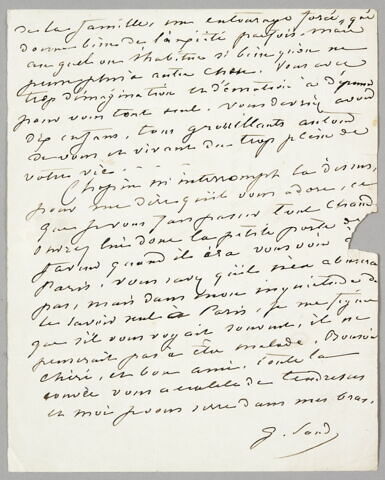 de la famille, une entourage forcé, qui
donne bien de l'anxiété parfois, mais
auquel on s'habitue si bien qu'on ne
peut plus autre chose. Vous avez
trop d'imagination et d'émotion à dépenser
pour vous tout seul. Vous devriez avoir
dix enfans, tous grouillants autour
de vous et vivant du trop plein de
votre vie.
Chopin m'interrompt là dessus,
pour me dire qu'il vous adore, ce
que je vous fais passer tout chaud.
ouvrez lui donc la petite porte de
faveur quand il ira vous voir à
Paris, vous savez qu'il n'en abusera
pas, mais dans mon inquiétude de
le savoir seul à Paris, je me figure
que s'il vous voyait souvent, il ne
penserait pas à être malade. Bonsoir
chéri, et bon ami. Toute la
couvée vous accable de tendresses
et moi je vous serre dans mes bras.
G. Sand